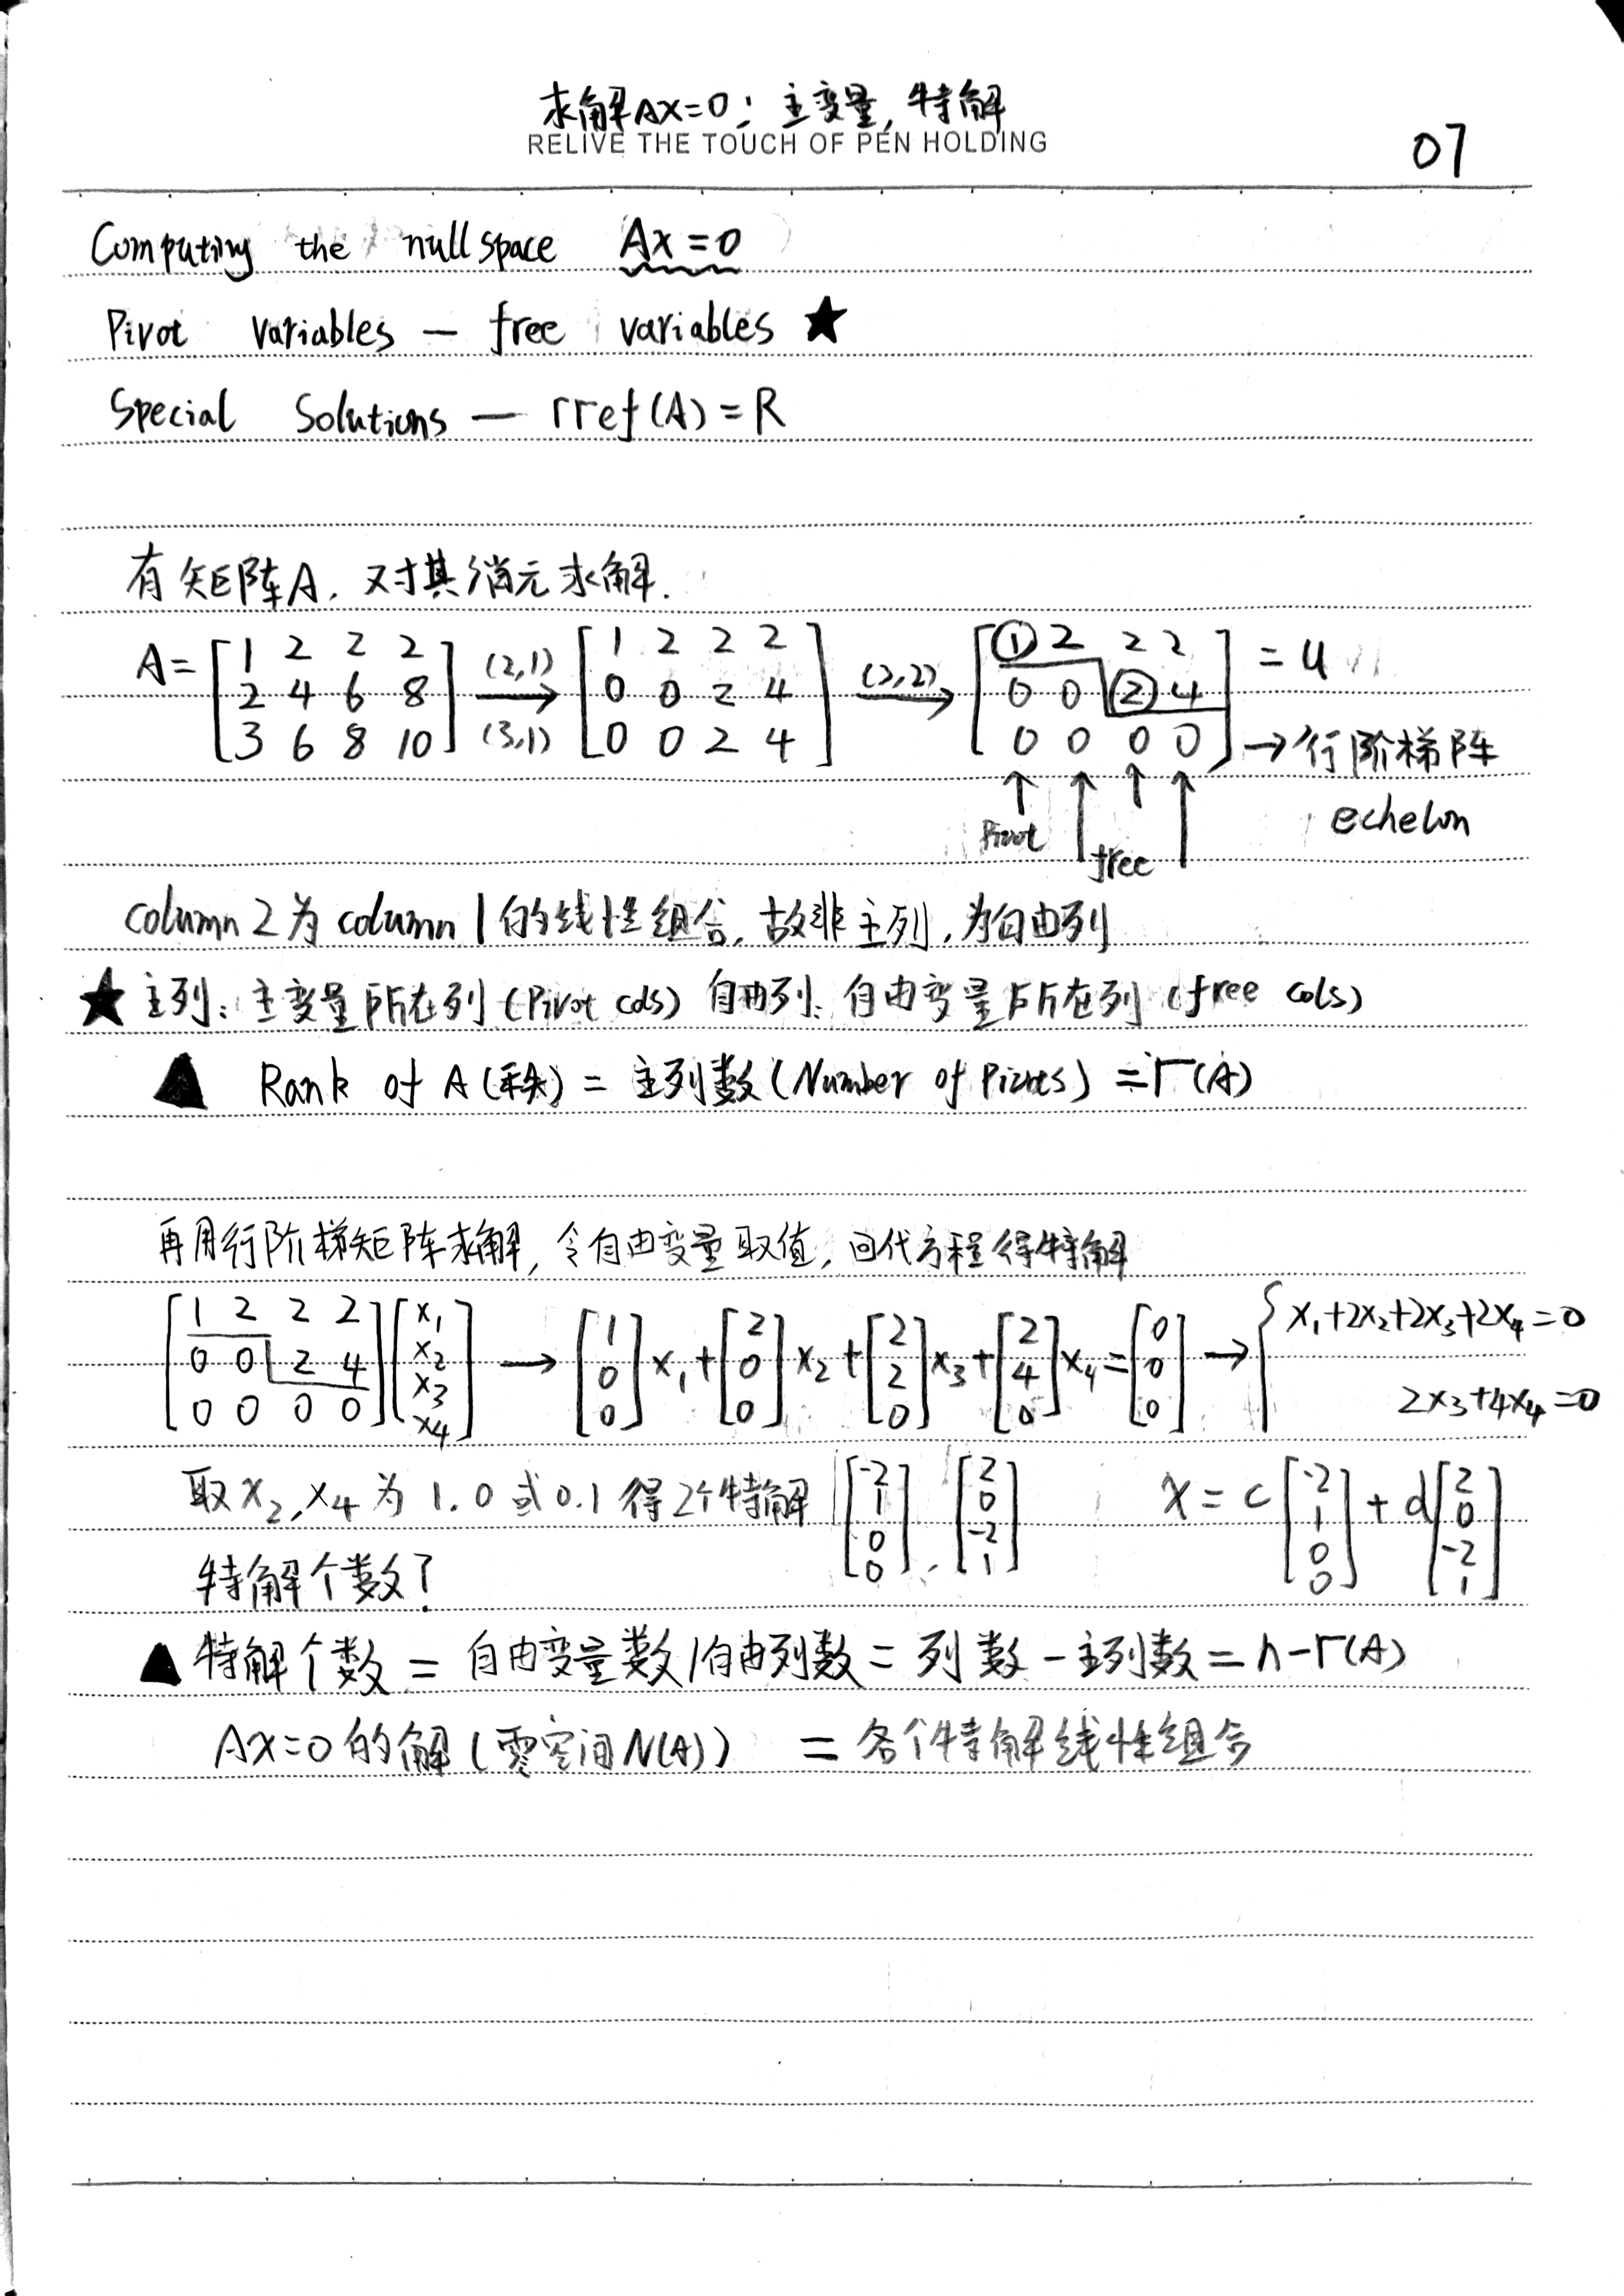 求解AX=0：主变量，特解
RELIVE THE TOUCH OF PEN HOLDING
07
Computing the nullspace Ax=0
Pivot variables — free variables ★
Special Solutions — rref(A)=R
有矩阵A，对其消元求解.
A=[1 2 2 2; 2 4 6 8; 3 6 8 10] (2,1)→(3,1) [1 2 2 2; 0 0 2 4; 0 0 2 4] (3,2)→ [① 2 2 2; 0 0 ② 4; 0 0 0 0] = U
→行阶梯阵
echelon
↑ ↑ ↑ ↑
Pivot free
column 2 为 column 1 的线性组合，故非主列，为自由列
★ 主列：主变量所在列 (Pivot cols) 自由列：自由变量所在列 (free cols)
▲ Rank of A (秩) = 主列数 (Number of Pivots) = r(A)
再用行阶梯矩阵求解，令自由变量取值，回代方程得特解
[1 2 2 2; 0 0 2 4; 0 0 0 0][x₁; x₂; x₃; x₄] → [1; 0; 0]x₁+[2; 0; 0]x₂+[2; 2; 0]x₃+[2; 4; 0]x₄=[0; 0; 0] → {x₁+2x₂+2x₃+2x₄=0
2x₃+4x₄=0
取x₂,x₄为1.0或0.1得2个特解 [-2; 1; 0; 0], [2; 0; -2; 1] X = c[-2; 1; 0; 0] + d[2; 0; -2; 1]
特解个数？
▲ 特解个数 = 自由变量数/自由列数 = 列数 - 主列数 = n-r(A)
AX=0的解 (零空间N(A)) = 各个特解线性组合